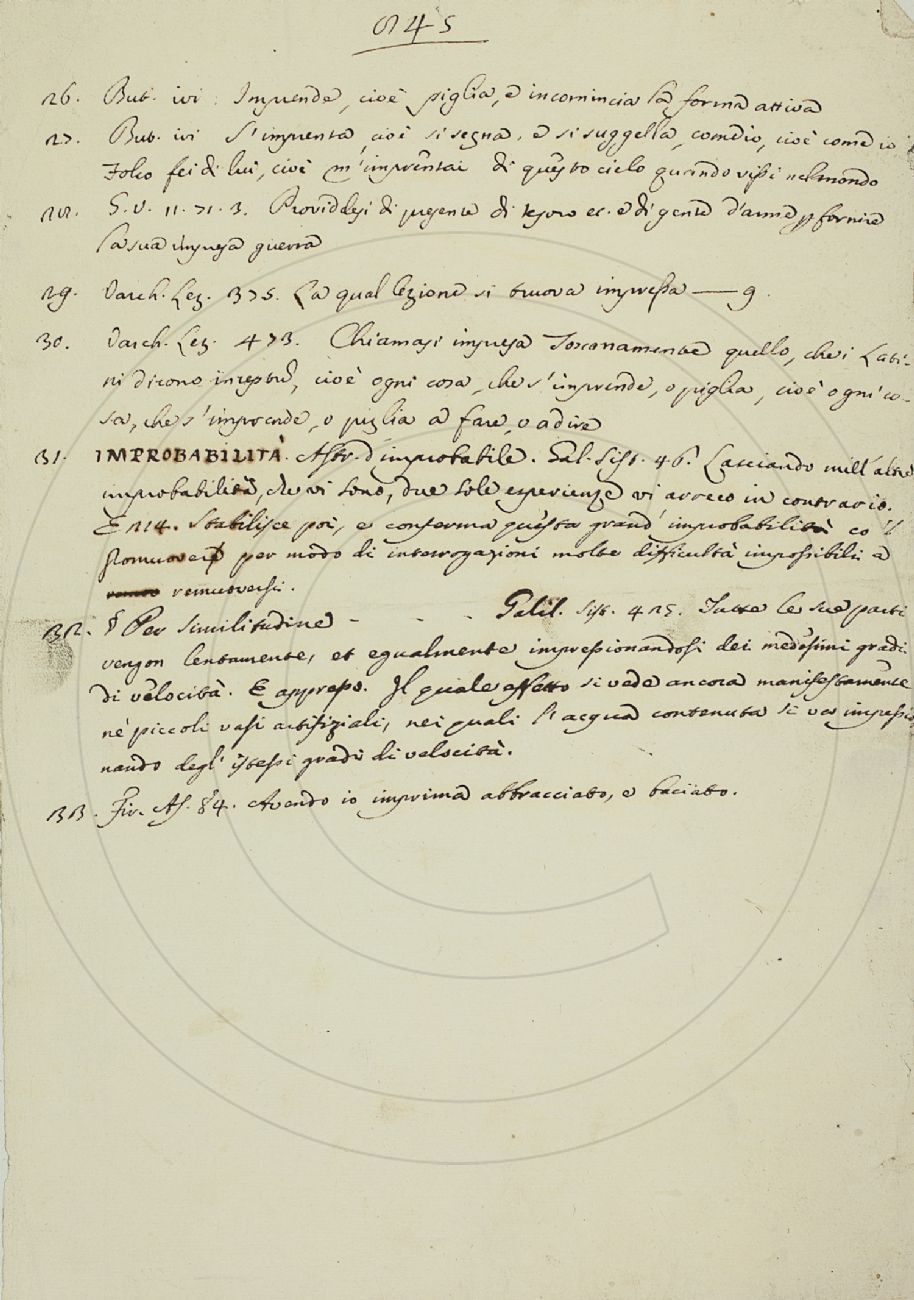 245
26. But. ivi: Imprende, cioè piglia, e incomincia la forma attiva
27. But. ivi S'imprenta cioè si segna, e si suggella, comedio, cioè come io
Folco fei di lui, cioè m'imprentai di questo cielo quando vissi nel mondo
28. G. V. 11. 71. 3. Providdesi di presente di tesoro ec. e di gente d'arme p fornire
la sua impresa guerra
29. Varch. Lez. 375. La qual lezione si truova impressa — 9.
30. Varch. Lez. 473. Chiamasi impresa Toscanamente quello, che i Lati-
ni dicono, cioè ogni cosa, che s'imprende, o piglia, cioè ogni co-
sa, che s'imprende, o piglia a fare, o a dire
31. IMPROBABILITÀ. Astr. d'improbabile. Gal. Sist. 46. Lasciando mill'altre
improbabilità, che vi sono, due sole esperienze vi arreco in contrario.
E 214. Stabilisce poi, e conferma questa grand'improbabilità co'l
promuover per modo di interrogazioni molte difficultà impossibili a
remuoversi.
32. § Per similitudine - - - Galil. Sist. 425. Tutte le sue parti
vengon lentamente, et egualmente impressionandosi dei medesimi gradi
di velocità. E appresso. Il quale effetto si vede ancora manifestamente
nè piccoli vasi artifiziali, nei quali l'acqua contenuta si va impressio
nando degl'istessi gradi di velocità.
33. Fir. As. 84. Avendo io imprima abbracciato, e baciato.